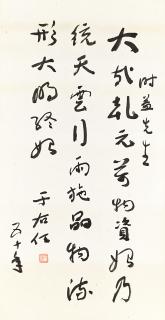 先生
大哉乾元萬物資始乃
統天雲行雨施品物流
形大明終始
于右任
五十年